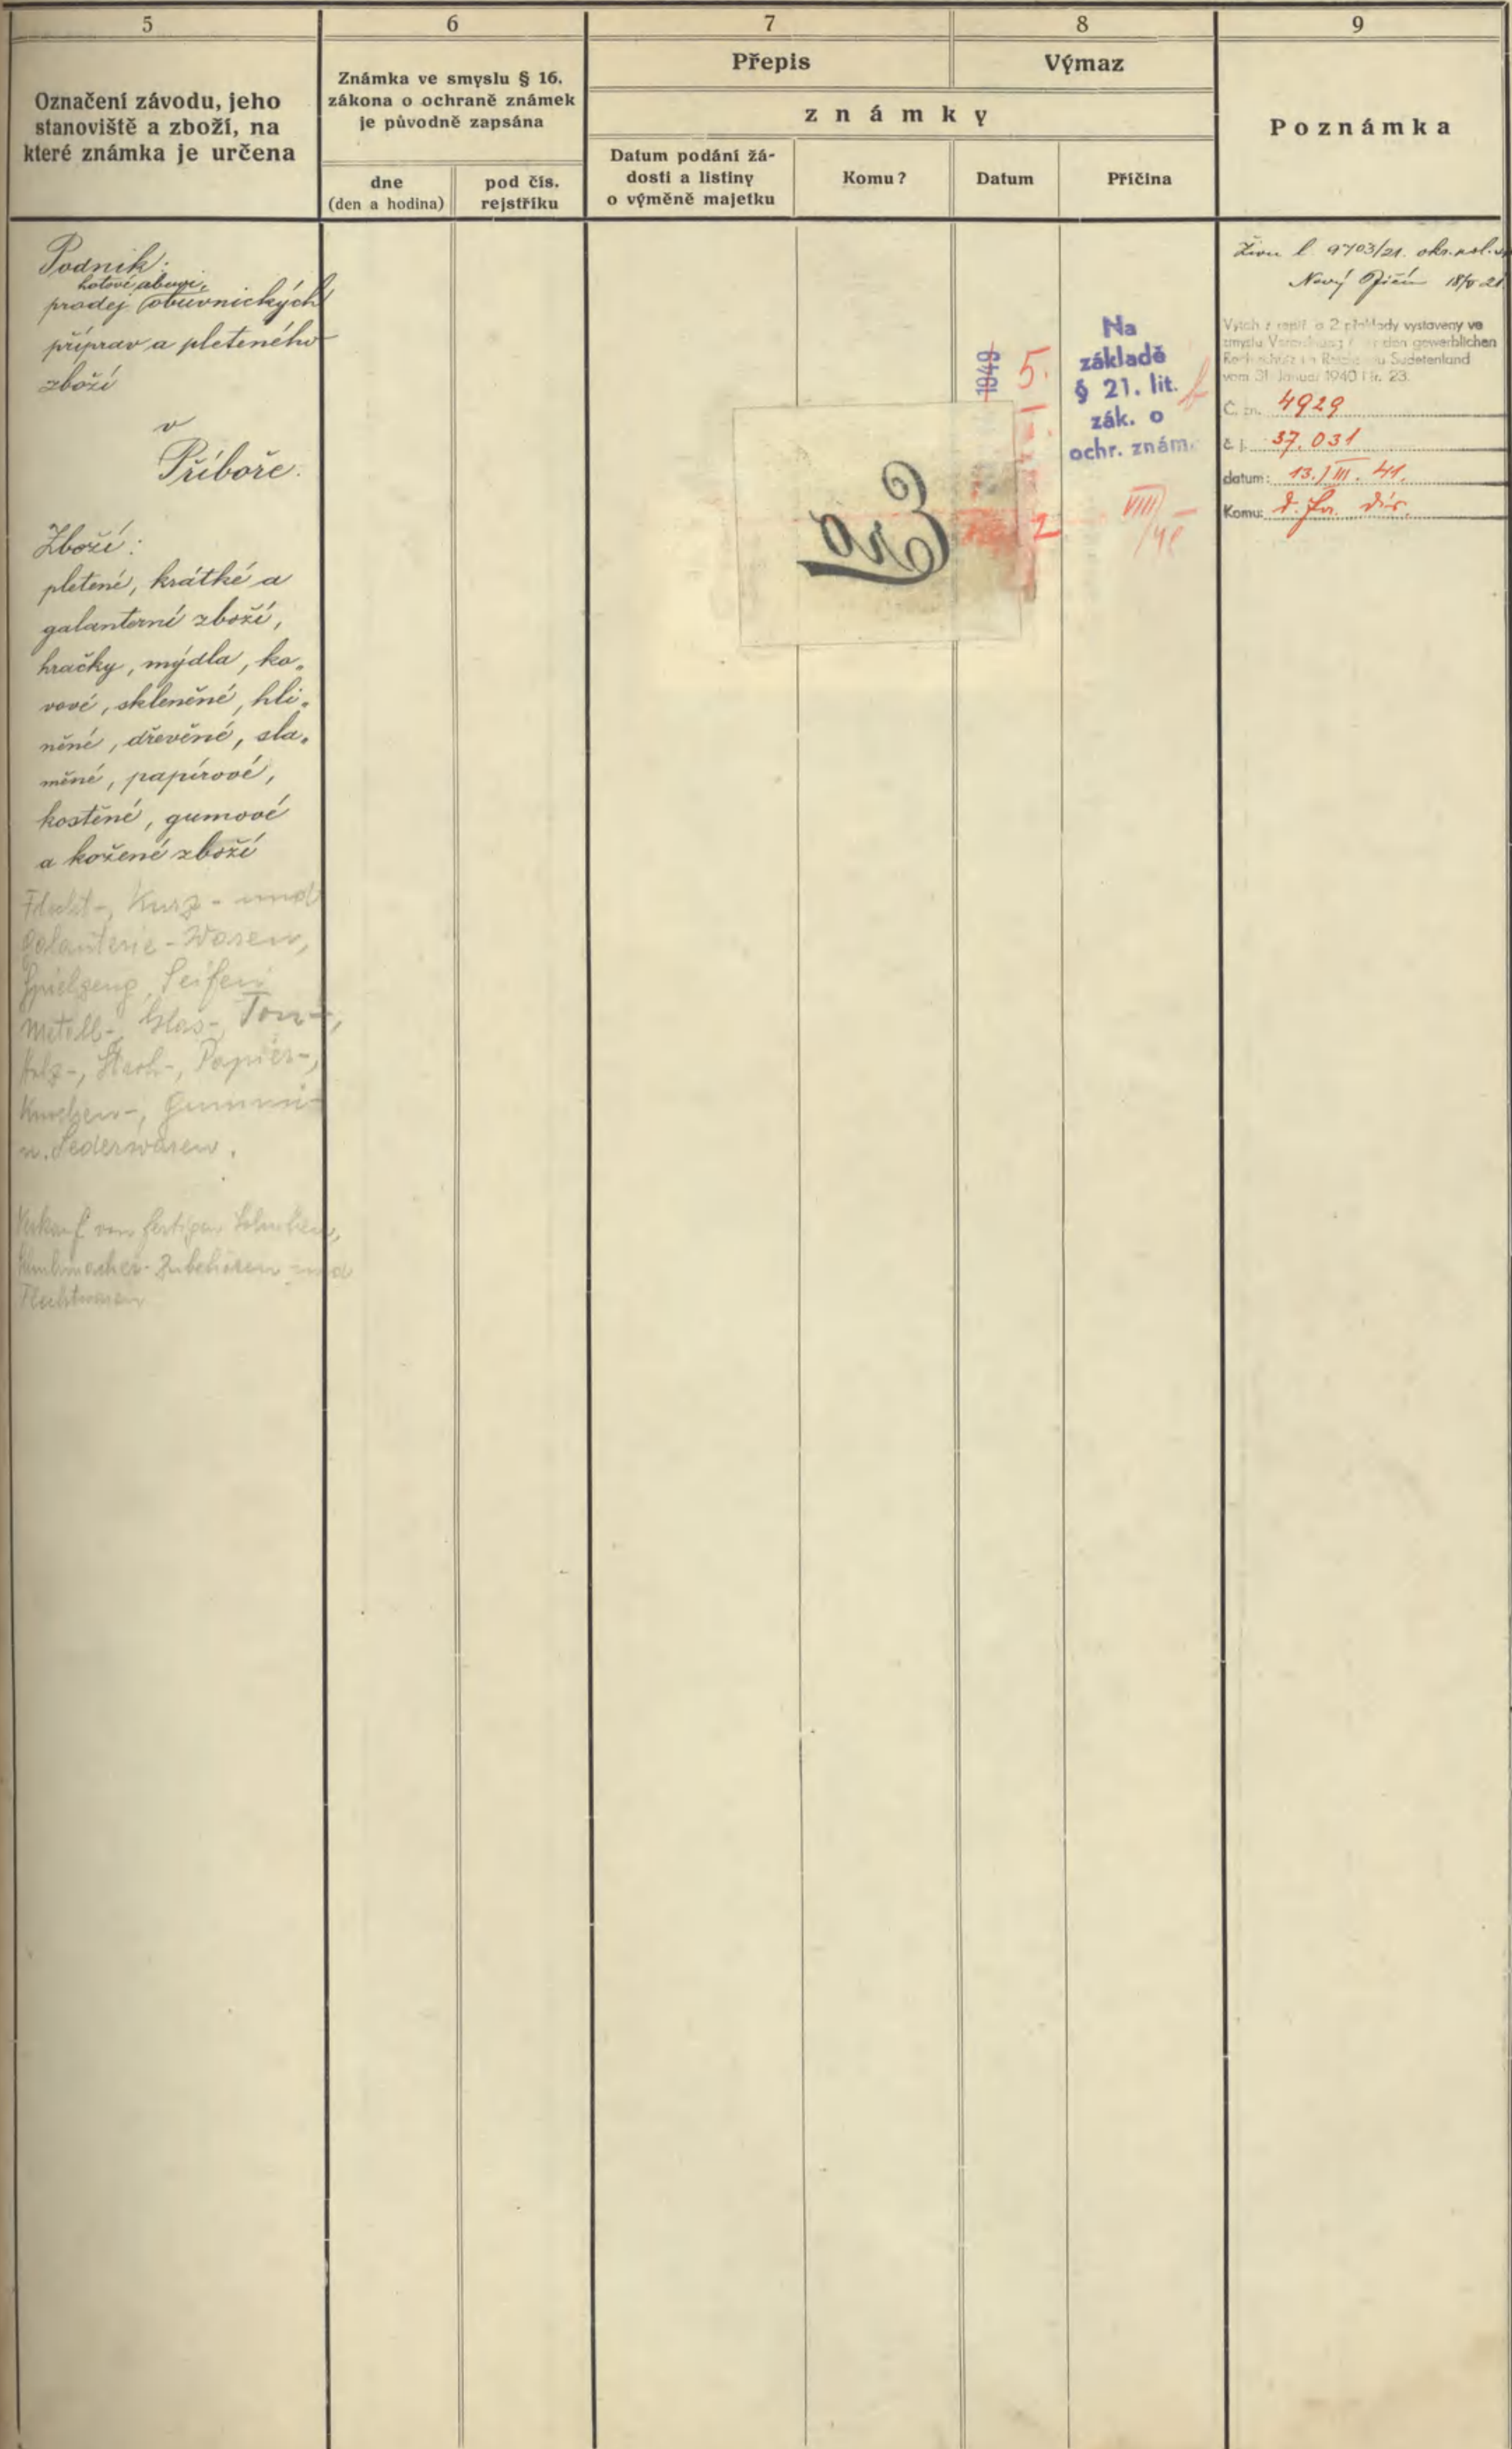 5
6
7
8
9
Označení závodu, jeho
stanoviště a zboží, na
které známka je určena
Známka ve smyslu § 16.
zákona o ochraně známek
je původně zapsána
dne
(den a hodina)
pod čís.
rejstříku
Přepis
Výmaz
známky
Datum podání žá-
dosti a listiny
o výměně majetku
Komu?
Datum
Příčina
Poznámka
Podnik:
hotové obuvi,
prodej obuvnických
příprav a pleteného
zboží
v
Příboře.
Zboží:
pletené, krátké a
galanterní zboží,
hračky, mýdla, ko-
vové, skleněné, hli-
něné, dřevěné, sla-
měné, papírové,
kostěné, gumové
a kožené zboží
Flecht-, Kurz- und
Galanterie-Waren,
Spielzeug, Seifen
Metall-, Glas-, Ton-,
Holz-, Stroh-, Papier-,
Knochen-, Gummi-
u. Lederwaren.
Verkauf von fertigen Schuhen,
Schuhmacher-Zubehören und
Flechtwaren
1949
5.
2
Na
základě
§ 21. lit.
zák. o
ochr. znám.
VIII
/48
9703/21. okr. pol.
Nový Jičín 18/V 21
a 2 překlady vystaveny ve
smyslu den gewerblichen
Sudetenland
vom 31. Januar 1940 Nr. 23.
Č. zn. 4929
č. j. 37.031
datum: 13./III. 41.
Komu: